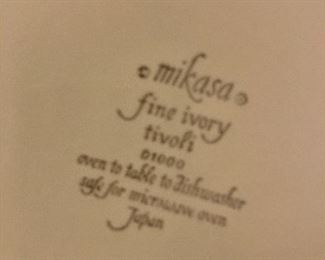 mikasa
fine ivory
tivoli
D1000
oven to table to dishwasher
safe for microwave oven
Japan